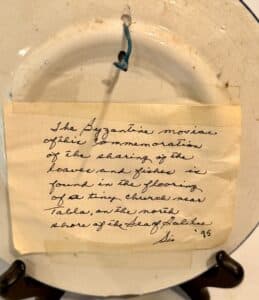 The Byzantine mosiac
of this commemoration
of the sharing of the
loaves and fishes is
found in the flooring
of a tiny church near
Tabba, on the north
shore of the Sea of Galilee
Sis '95